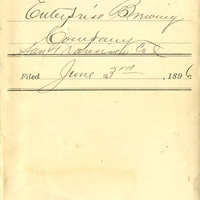 Enterprise Brewing
Company
San Francisco Cal
Filed June 3rd, 1896